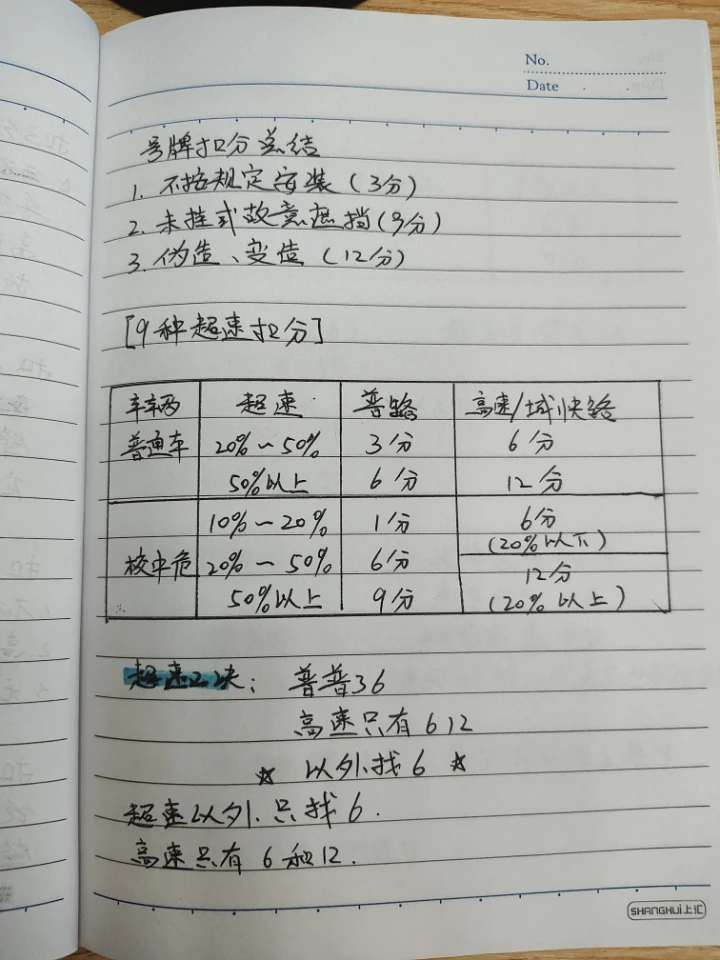 No.
Date
号牌扣分总结
1. 不按规定安装(3分)
2. 未挂或故意遮挡(9分)
3. 伪造、变造(12分)
[9种超速扣分]
车辆 超速 普路 高速/城快路
普通车 20%~50% 3分 6分
50%以上 6分 12分
10%~20% 1分 6分
(20%以下)
校中危 20%~50% 6分 12分
50%以上 9分 (20%以上)
超速口决: 普普36
高速只有612
☆ 以外找6 ☆
超速以外只找6.
高速只有6和12.
SHANGHUI上汇